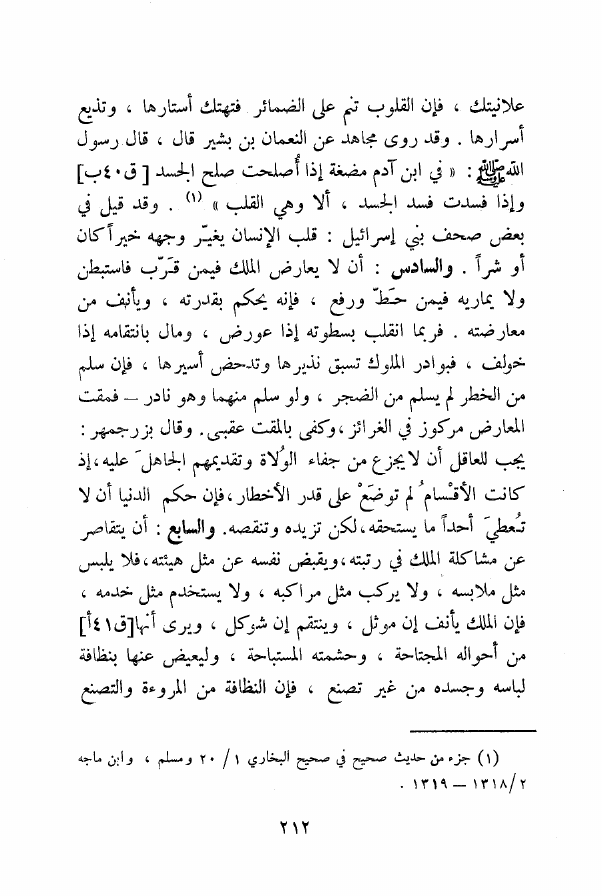 علانيتك ، فإن القلوب تنم على الضمائر فتهتك أستارها ، وتذيع
أسرارها . وقد روى مجاهد عن النعمان بن بشير قال ، قال رسول
الله ﷺ : « في ابن آدم مضغة إذا أُصلحت صلح الجسد [ ق٤٠ب]
وإذا فسدت فسد الجسد ، ألا وهي القلب » (١) . وقد قيل في
بعض صحف بني إسرائيل : قلب الإنسان يغيّر وجهه خيراً كان
أو شراً . والسادس : أن لا يعارض الملك فيمن قرّب فاستبطن
ولا يماريه فيمن حطّ ورفع ، فإنه يحكم بقدرته ، ويأنف من
معارضته . فربما انقلب بسطوته إذا عورض ، ومال بانتقامه إذا
خولف ، فبوادر الملوك تسبق نذيرها وتدحض أسيرها ، فإن سلم
من الخطر لم يسلم من الضجر ، ولو سلم منهما وهو نادر – فمقت
المعارض مركوز في الغرائز ، وكفى بالمقت عقبى. وقال بزرجمهر :
يجب للعاقل أن لا يجزع من جفاء الوُلاة وتقديمهم الجاهلَ عليه، إذ
كانت الأقْسامُ لم توضَعْ على قدر الأخطار، فإن حكم الدنيا أن لا
تُعطيَ أحداً ما يستحقه، لكن تزيده وتنقصه. والسابع : أن يتقاصر
عن مشاكلة الملك في رتبته، ويقبض نفسه عن مثل هيئته، فلا يلبس
مثل ملابسه ، ولا يركب مثل مراكبه ، ولا يستخدم مثل خدمه ،
فإن الملك يأنف إن موثل ، وينتقم إن شوكل ، ويرى أنها[ق٤١أ]
من أحواله المجتاحة ، وحشمته المستباحة ، وليعيض عنها بنظافة
لباسه وجسده من غير تصنع ، فإن النظافة من المروءة والتصنع
(١) جزء من حديث صحيح في صحيح البخاري ١/ ٢٠ ومسلم ، وابن ماجه
٢/١٣١٨ – ١٣١٩ .
٢١٢